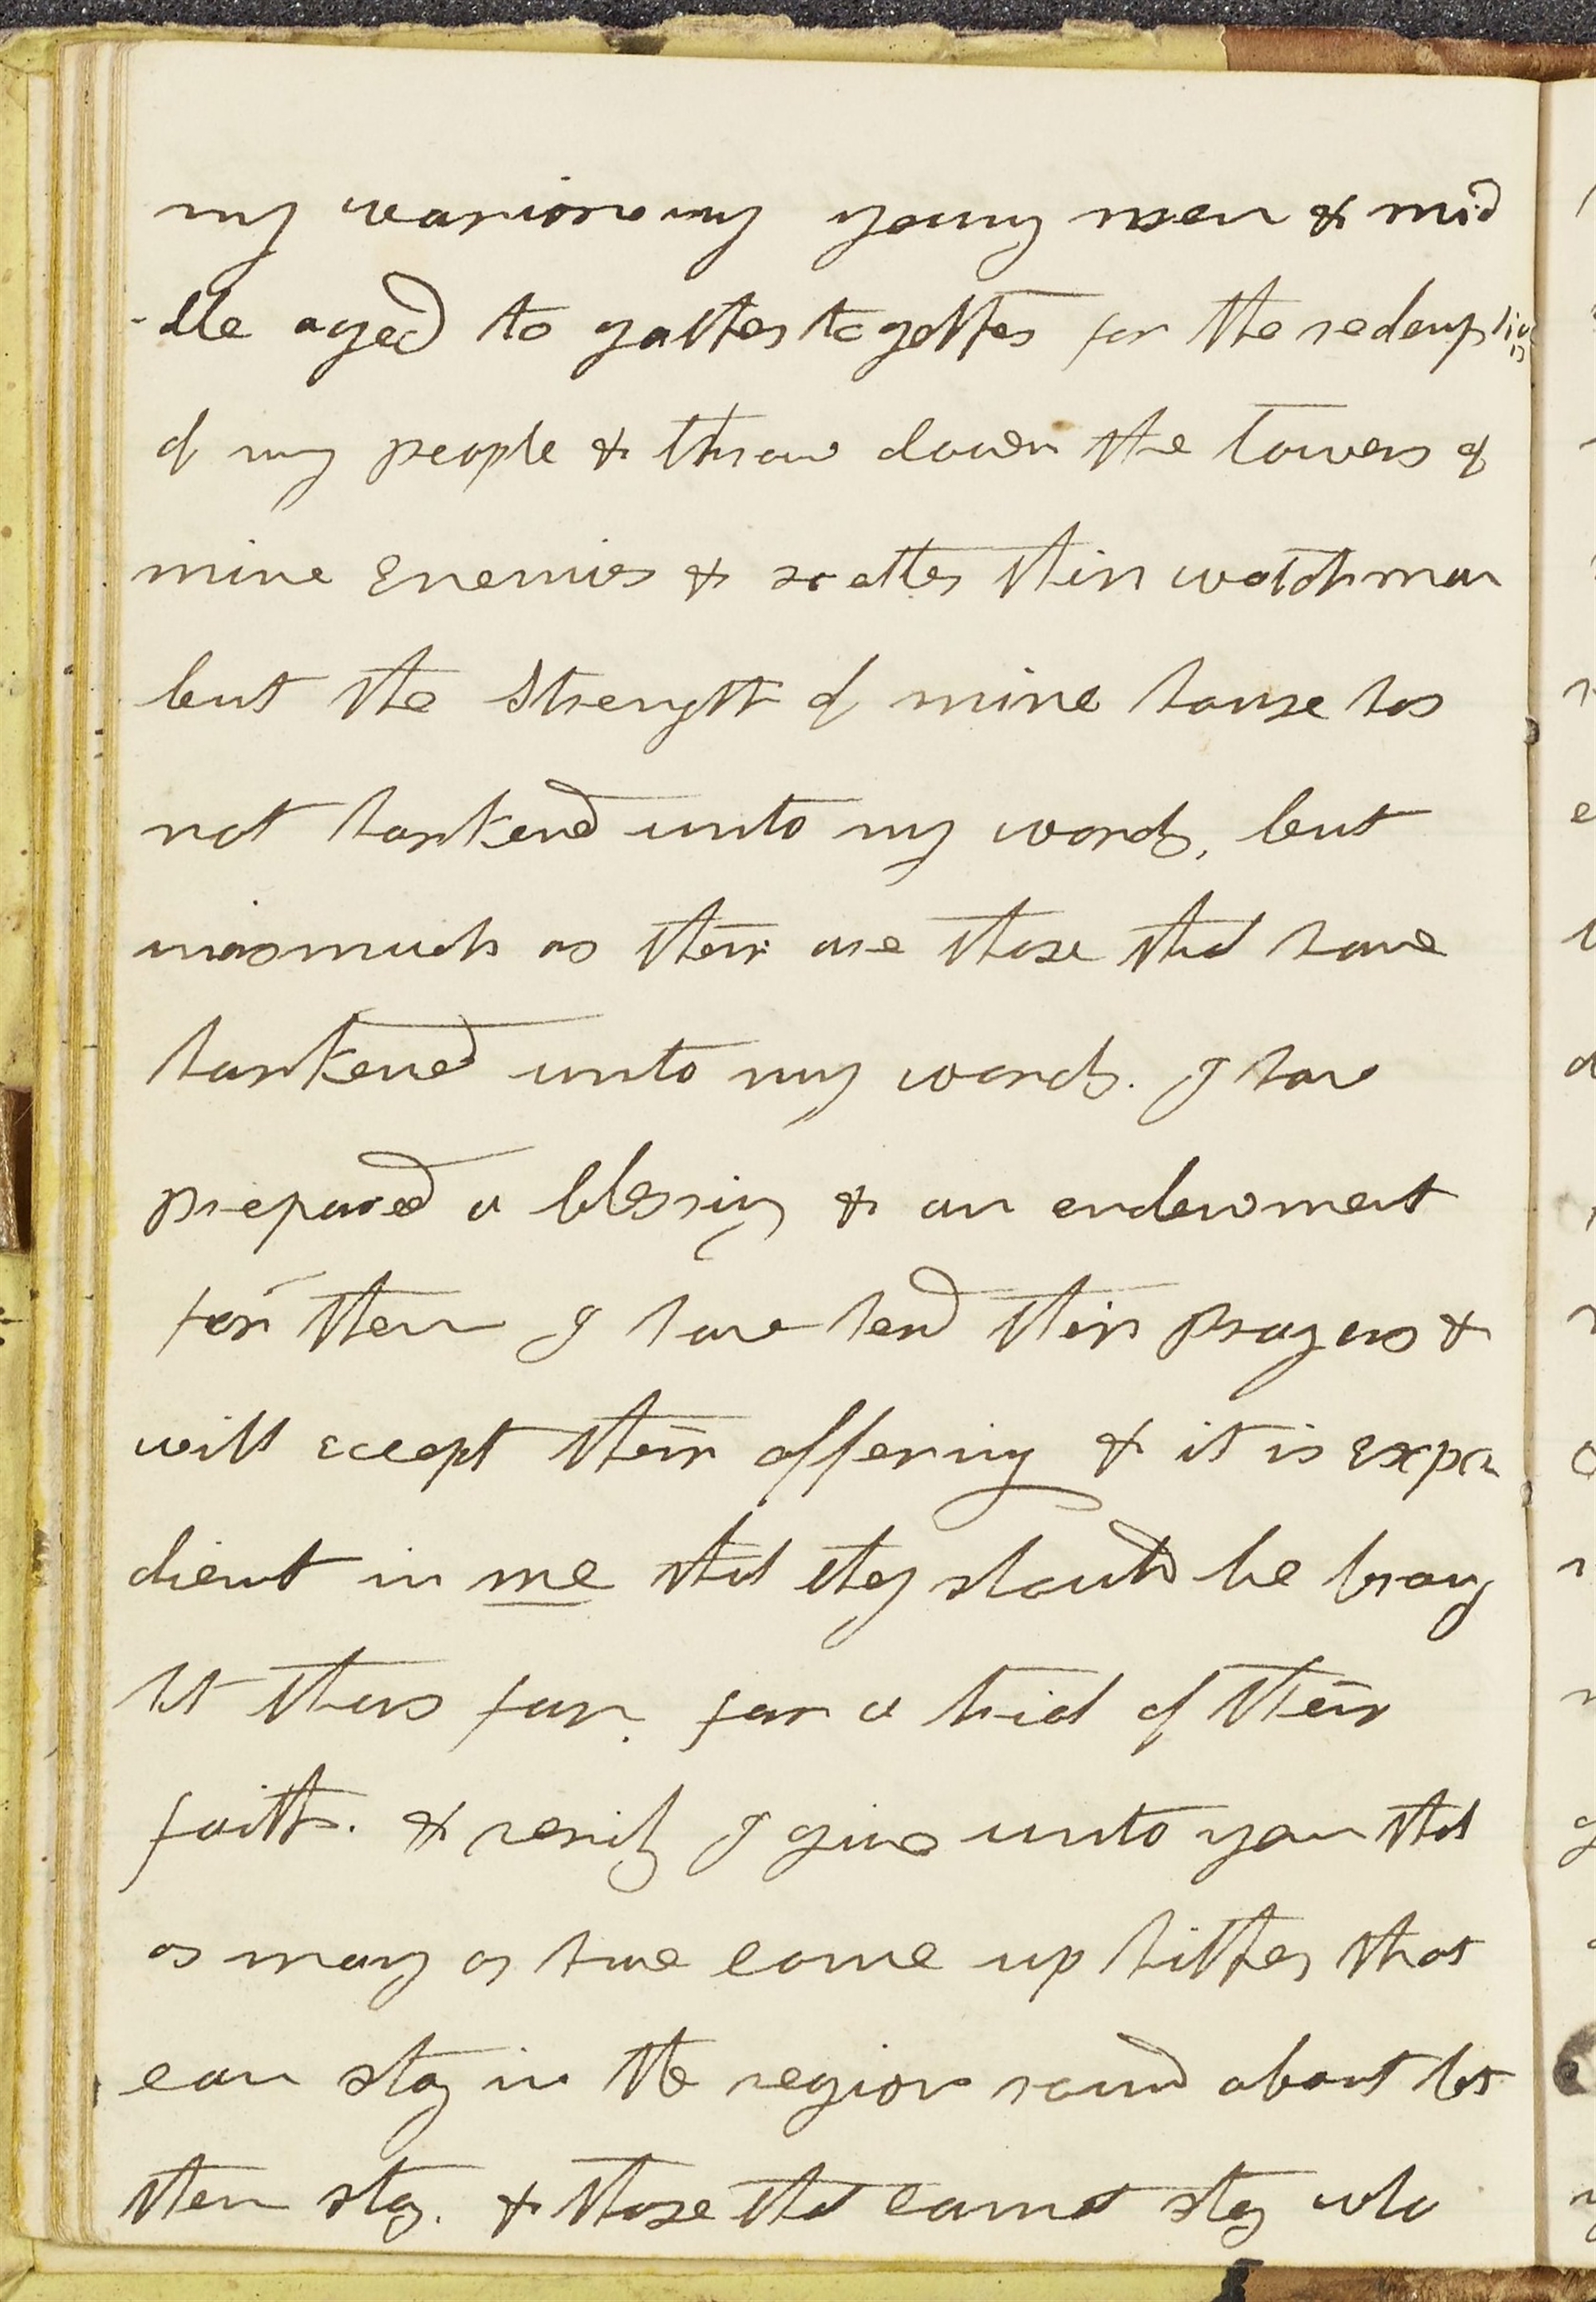 my wariors my young men & mid
-dle aged to gather together for the redemption
of my people & throw down the towers of
mine Enemies & scatter their watchman
but the Strength of mine house has
not harkend unto my words, but
inasmuch as their are those that have
harkened unto my words. I have
prepared a blessing & an endewment
for them I have herd their prayers &
will except their offering & it is expe
dient in me that they should be broug
ht thus far. for a trial of their
faith. & verily I give unto you that
as many as have come up hither that
can stay in the region round about let
them stay. & those that cannot stay who